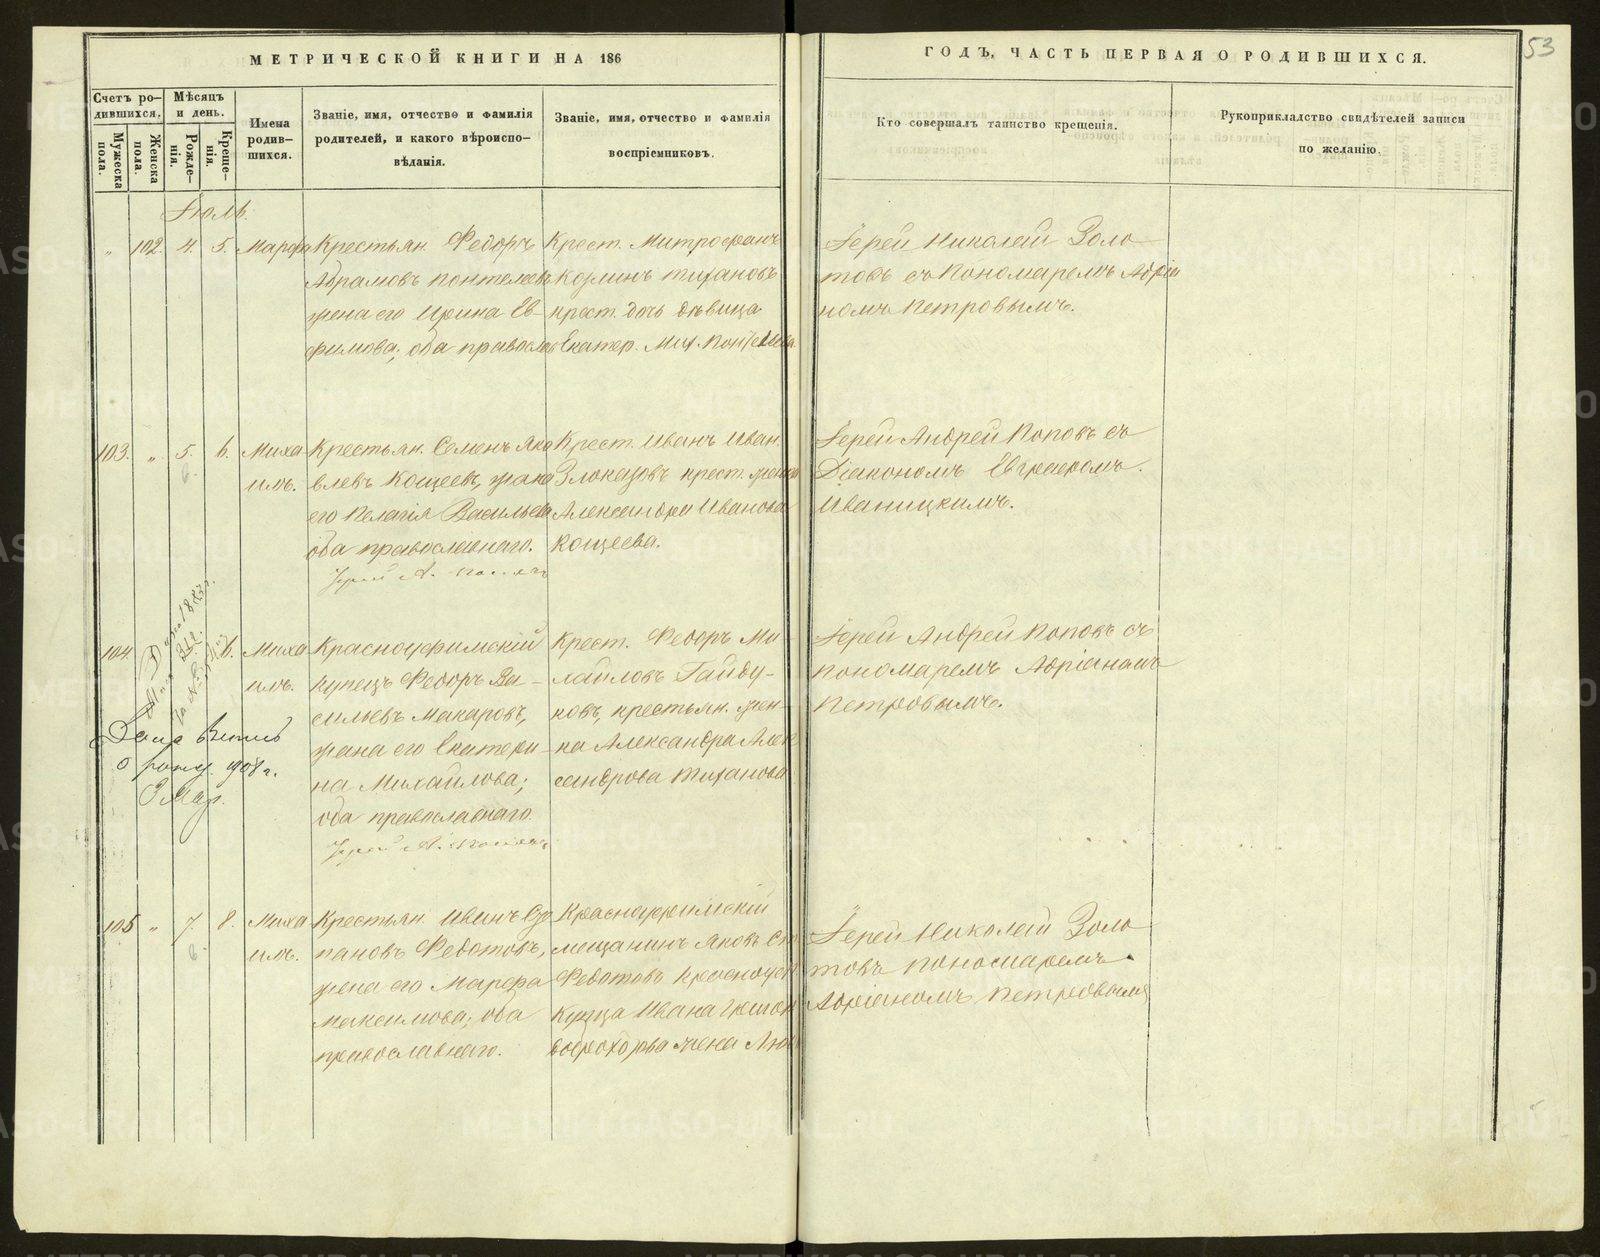 МЕТРИЧЕСКОЙ КНИГИ НА 186
ГОДЪ, ЧАСТЬ ПЕРВАЯ О РОДИВШИХСЯ.
53
Счетъ ро-
дившихся.
Мужеска
пола.
Женска
пола.
Мѣсяцъ
и день.
Рожде-
нія.
Креще-
нія.
Имена
родив-
шихся.
Званіе, имя, отчество и фамилія
родителей, и какого вѣроиспо-
вѣданія.
Званіе, имя, отчество и фамилія
воспріемниковъ.
Кто совершалъ таинство крещенія.
Рукоприкладство свидѣтелей записи
по желанію.
Іюль.
„ 102. 4. 5. Марфа
Крестьян. Федоръ
Абрамовъ
жена его Ирина Ев-
фимова; оба православ
Крест. Митрофанъ
Козминъ Тихановъ
крест. дочь дѣвица
Екатер. Мих.
Іерей Николай Золо
товъ съ Пономаремъ Адріа
номъ Петровымъ.
103. „ 5. 6. Миха
илъ.
Крестьян. Семенъ Яко
влевъ Кощеевъ, жена
его Пелагія Васильева
оба православнаго.
Іерей А. Поповъ
Крест. Иванъ Иван.
Злоказовъ крест. жена
Александра Иванова
Кощеева.
Іерей Андрей Поповъ съ
Діакономъ Евграфомъ
Иваницкимъ.
104. 6. Миха
илъ.
Дана выпись
1908 г.
3 Мар.
Красноуфимскій
купецъ Федоръ Ва-
сильевъ Макаровъ,
жена его Екатери-
на Михайлова;
оба православнаго.
Іерей А. Поповъ
Крест. Федоръ Ми-
хайловъ Гайду-
ковъ, крестьян. жен-
ка Александра Алек
сандрова Тиханова
Іерей Андрей Поповъ съ
пономаремъ Адріаномъ
Петровымъ.
105 „ 7. 8. Миха
илъ.
Крестьян. Иванъ Сте
пановъ Федотовъ,
жена его Марфа
Максимова; оба
православнаго.
Красноуфимскій
мещанинъ Яковъ Ст
Федотовъ Красноуф
Купца Ивана
жена Люб
Іерей Николай Золо
товъ Пономаремъ
Адріаномъ Петровымъ